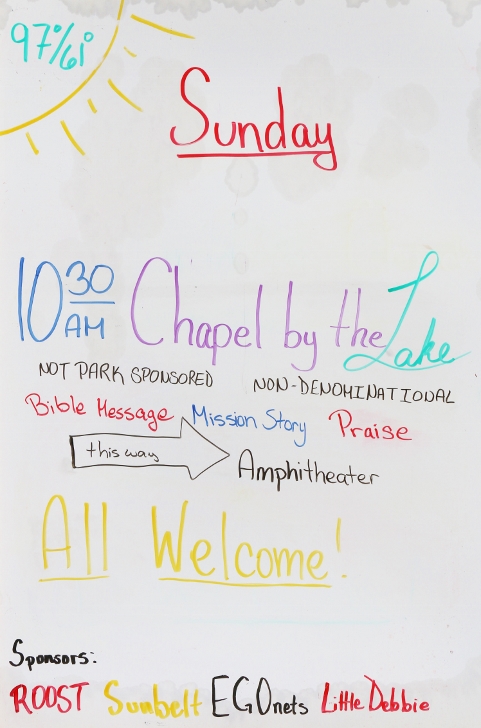 97°/61°
Sunday
10 30 AM Chapel by the Lake
NOT PARK SPONSORED NON-DENOMINATIONAL
Bible Message Mission Story Praise
this way Amphitheater
All Welcome!
Sponsors:
ROOST Sunbelt EGOnets Little Debbie